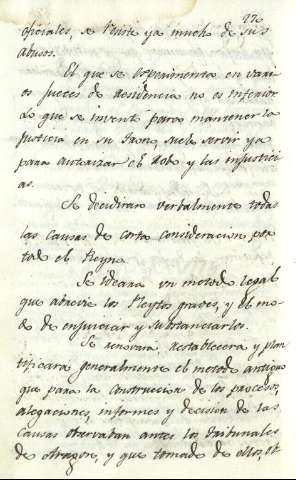 22
oficiales, se resiste ya mucho de sus
abusos.
El que se esperimenta en vari
os Jueces de Residencia no es inferior
Lo que se inventó para mantener la
Justicia en su Trono, suele servir ya
para autorizar el Robo y las injustici
as.
Se decidiran verbalmente todas
las causas de corta consideracion por
todo el Reyno.
Se ideara un metodo legal
que abrevie los Pleytos graves, y el mo-
do de enjuiciar y substanciarlos.
Se renovará restablecera y plan
tificará generalmente el metodo antiguo
que para la construccion de los procesos,
alegaciones, informes y decision de las
Causas observaban antes los Tribunales
de Aragon, y que tomado de ellos, ob-